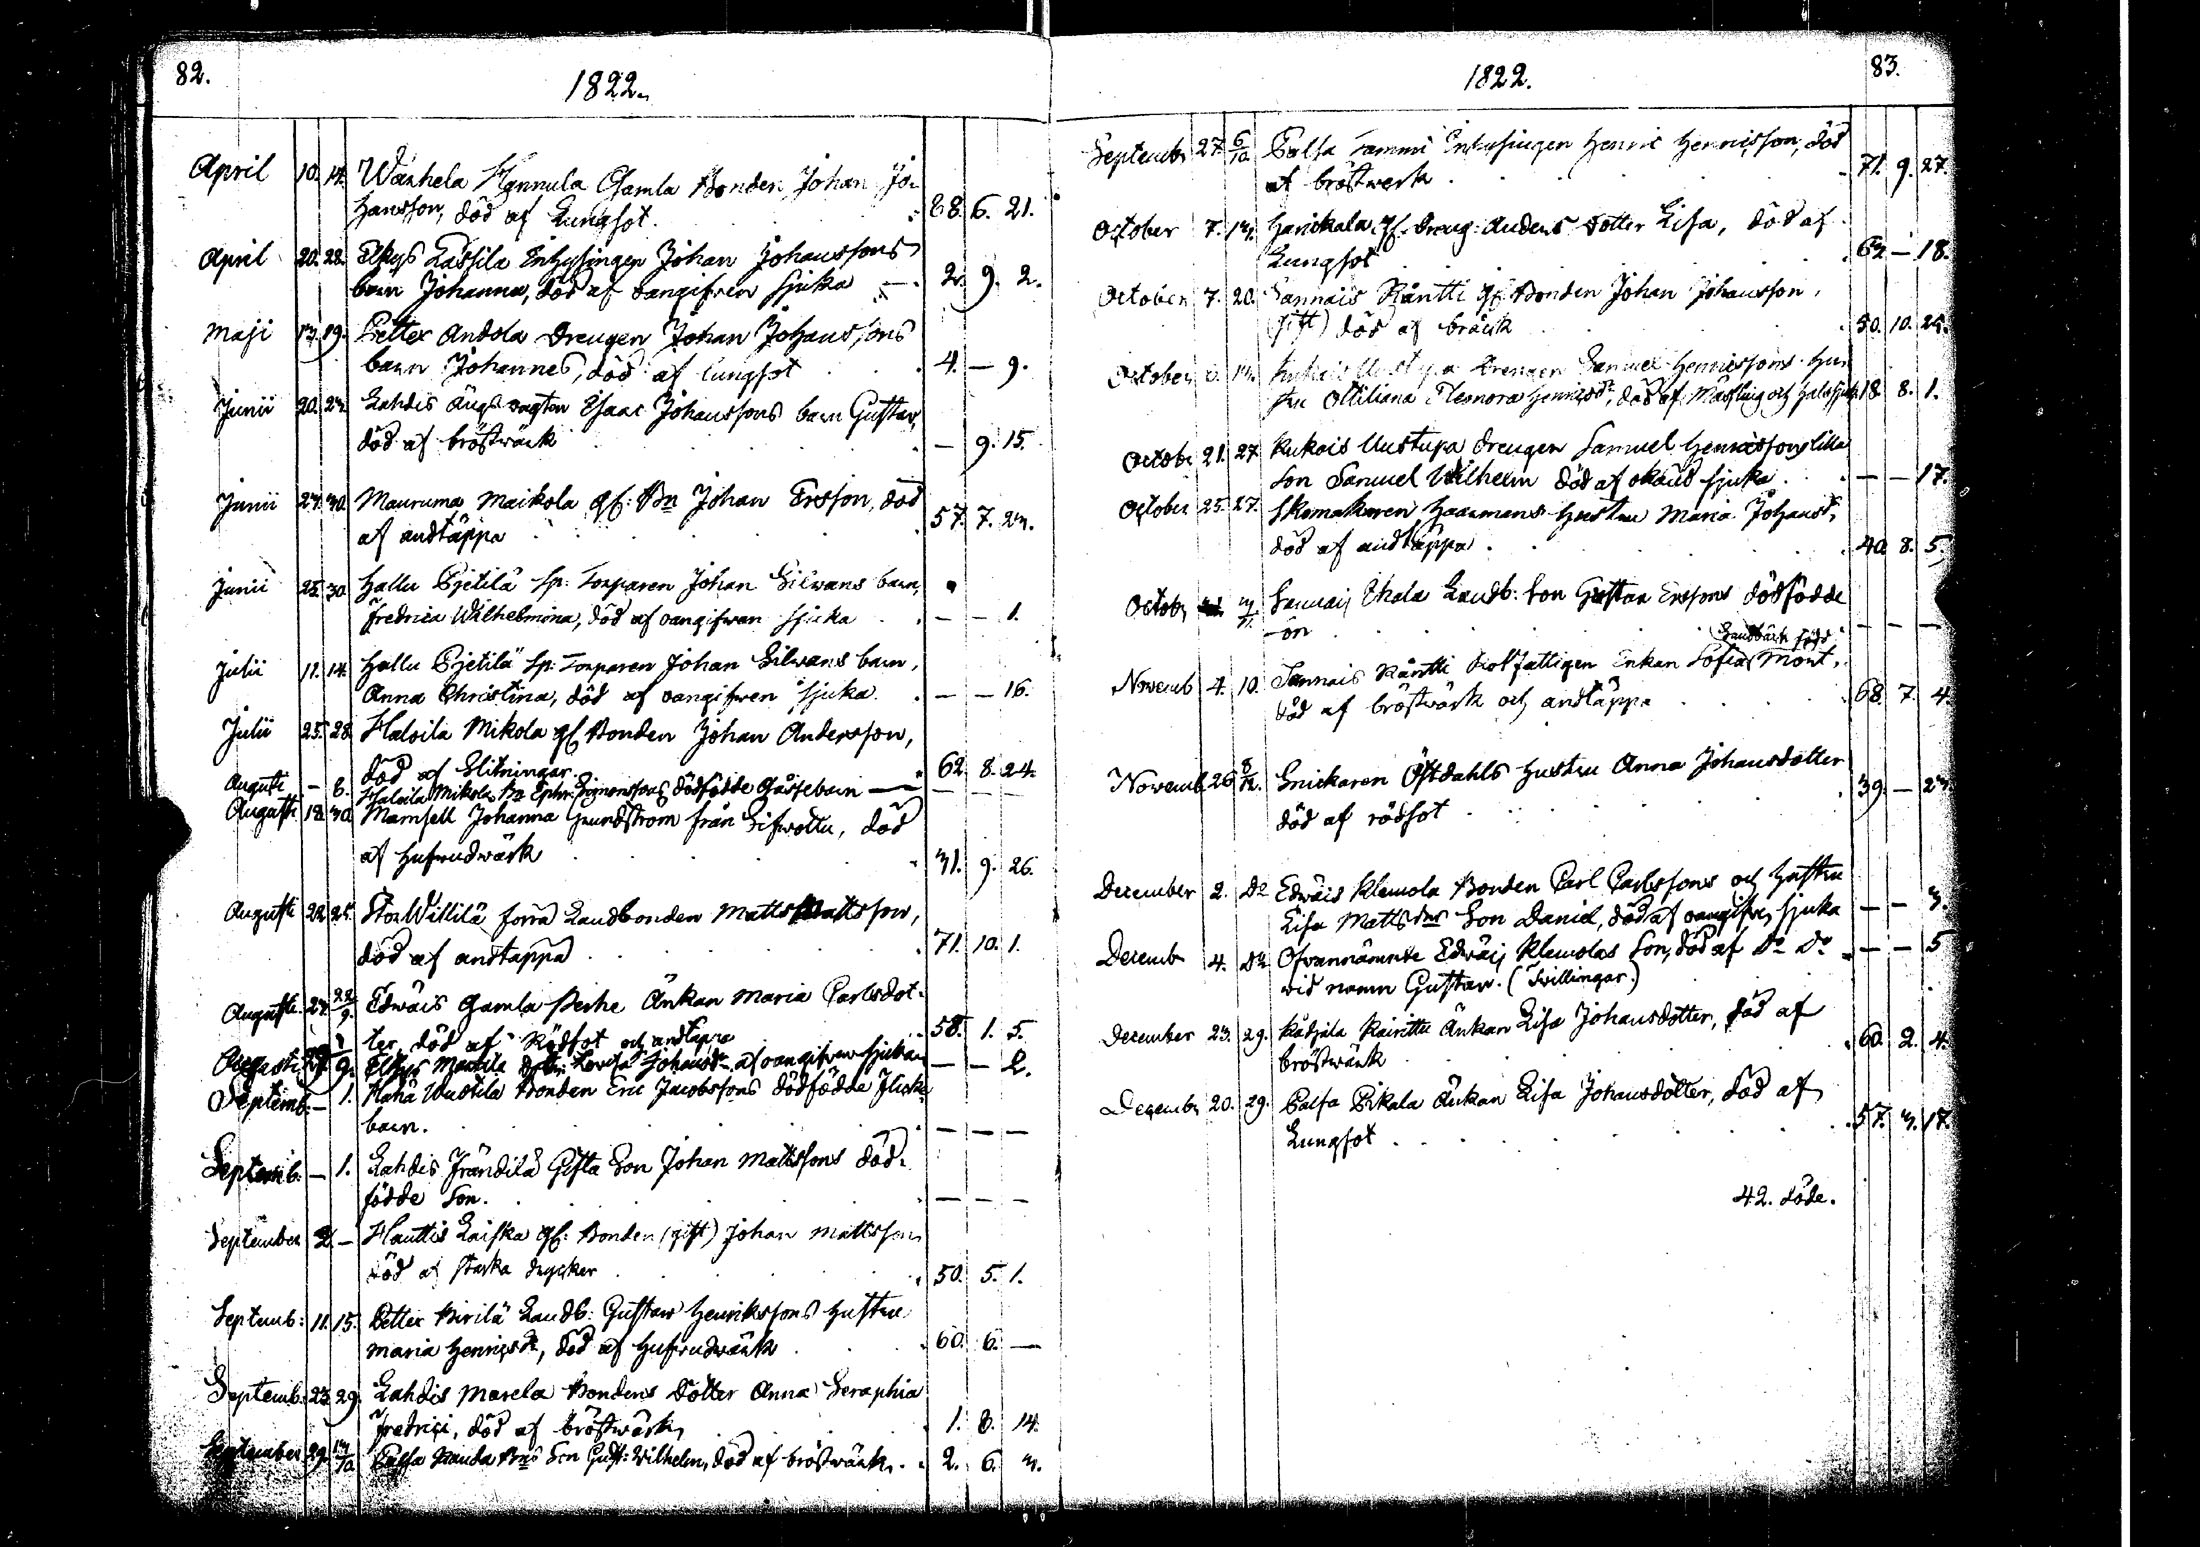 82.
1822.
April 10. 14. Wäxhela Hannula Gamla Bonden Johan Jo-
hansson, död af Lungsot. 88. 6. 21.
April 20. 28. Elkys Lassila Inhysingen Johan Johanssons
barn Johanna, död af oangifven sjuka 2. 9. 2.
Maji 13. 19. Petter Andola Drengen Johan Johanssons
barn Johannes, död af lungsot 4. — 9.
Junii 20. 23. Lahdis Isaac Johanssons barn Gustav,
död af bröstwärk — 9. 15.
Junii 24. 30. Mauruma Maikola gl: Bn Johan Ersson, död
af andtäppa 57. 7. 24.
Junii 25. 30. Hallu Pjetilä Sp: Torparen Johan Silwans barn,
Fredrica Wilhelmina, död af oangifwen sjuka — — 1.
Julii 11. 14. Hallu Pjetilä Sp: Torparen Johan Silwans barn,
Anna Christina, död af oangifven sjuka — — 16.
Julii 25. 28. Haloila Mikola gl Bonden Johan Andersson,
död af Slitningar. 62. 8. 24.
Augusti — 6. Haloila Mikola Bn Ephr: Simonssons dödfödde Gåssebarn — — —
Augusti 18. 30. Mamsell Johanna Grundstrom från död
af Hufvudwärk 31. 9. 26.
Augusti 22. 25. Stor Willilä förra Landbonden Matts Mattsson,
död af andtäppa 71. 10. 1.
Augusti 27. 22/9. Edwäis Gamla Perhe Änkan Maria Carlsdot-
ter, död af Rödsot och andtäppa 58. 1. 5.
Augusti Elkys Mattila Lovisa Johansdr af oangifven sjukan — — 2.
Septemb: — 1. Haha Wuotila Bonden Eric Jacobssons dödfödda flicke
barn. — — —
Septemb. — 1. Lahdis Frändilä Gifta Son Johan Mattssons död-
födde Son. — — —
September 2. — Hauttis Laiska gl: Bonden (gift) Johan Mattsson
död af starka drycker 50. 5. 1.
Septemb: 11. 15. Petter Pirilä Landb: Gustaw Henrikssons Hustru
Maria Henricsdr, död af Hufvudwärk 60. 6. —
Septemb: 23. 29. Lahdis Marela Bondens Dotter Anna Seraphia
Fredrici, död af bröstwärk, 1. 8. 14.
September 29. 13/10. Palsa Bns Son Gust: Wilhelm, död af bröstwärk. 2. 6. 3.
1822.
83.
Septembr 27. 6/10 Palsa Tammi Inhysingen Henric Henricsson, död
af bröstwerk 71. 9. 27.
October 7. 13. Dotter Lisa, död af
Lungsot 63 — 18.
October 7. 20. Sannais Räntti gl. Bonden Johan Johansson,
(gift) död af bråck 50. 10. 25.
October 13. Drengen Samuel Henricssons Hu-
stru Ottiliana Eleonora Henricsdr, död af Mässling och Halssjuka 18. 8. 1.
Octobr 21. 27 Kukois Uustupa Drengen Samuel Henricssons lilla
Son Samuel Wilhelm död af okänd sjuka — — 17.
October 25. 27. Skomakaren Haarmans Hustru Maria Johansd,
död af andtäppa 40. 8. 5.
Octobr 3/11. Sannais Uhala Landb: Son Gustaa Erssons dödfödde
son — — —
Novemb 4. 10. Sannais Räntti Enkan Sofia (Sandbäck född) Mont,
död af bröstwärk och andtäppa 68. 7. 4.
Novemb 26 8/12. Snickaren Östdahls Hustru Anna Johansdotter
död af rödsot 39. — 23.
December 2. Do Edwäis Klemola Bonden Carl Carlssons och Hustru
Lisa Mattsdrs Son Daniel, död af oangifven sjuka — — 3.
Decemb 4. Do Ofvannämnte Edwäis Klemolas Son, död af Do Do — — 5
wid namn Gustaw. (Twillingar.)
December 23. 29. Kådjala Kairittu Änkan Lisa Johansdotter, död af
bröstwärk 60. 2. 4.
Decembr 20. 29. Palsa Pikala Änkan Lisa Johansdotter, död af
Lungsot 57. 3. 17.
42. döde.